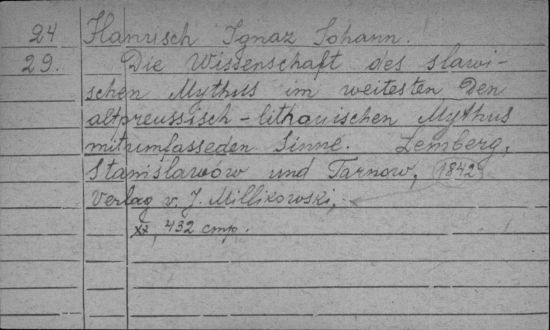 24 Hanusch Ignaz Johann.
29. Die Wissenschaft des slawi-
schen Mythus im weitesten Den
altpreussisch-lithauischen Mythus
mitumfasseden Sinne. Lemberg,
Stanisławów und Tarnow, 1842
Verlag v. J. Millikowski,
XX, 432 стр.